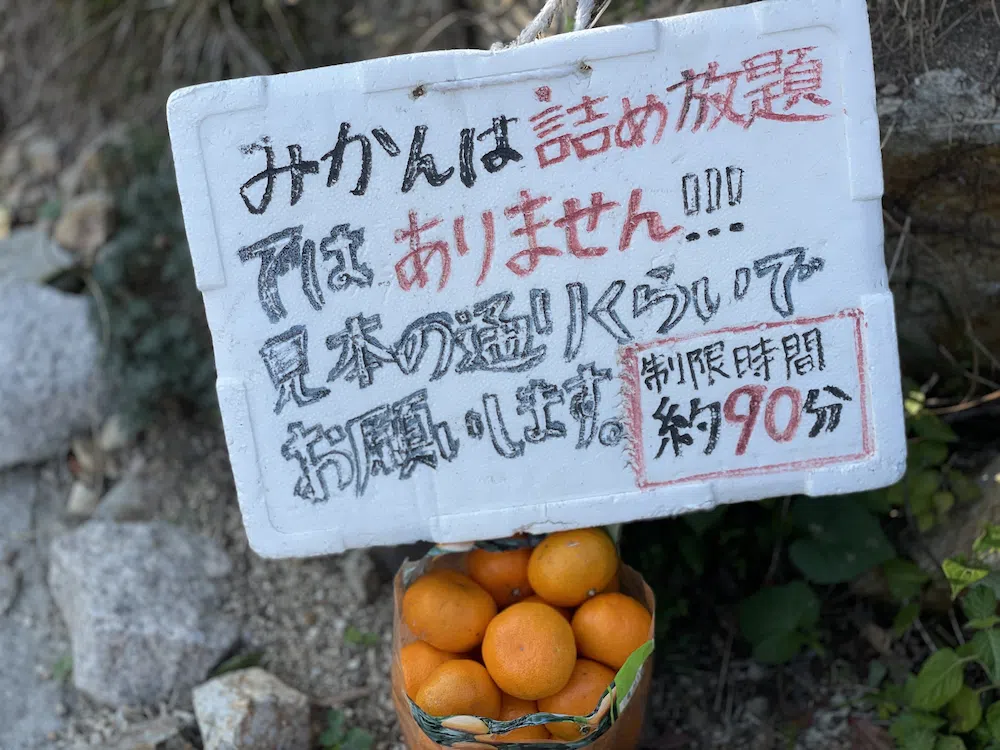 みかんは詰め放題
ではありません!!!
見本の通りくらいで
お願いします。
制限時間
約90分